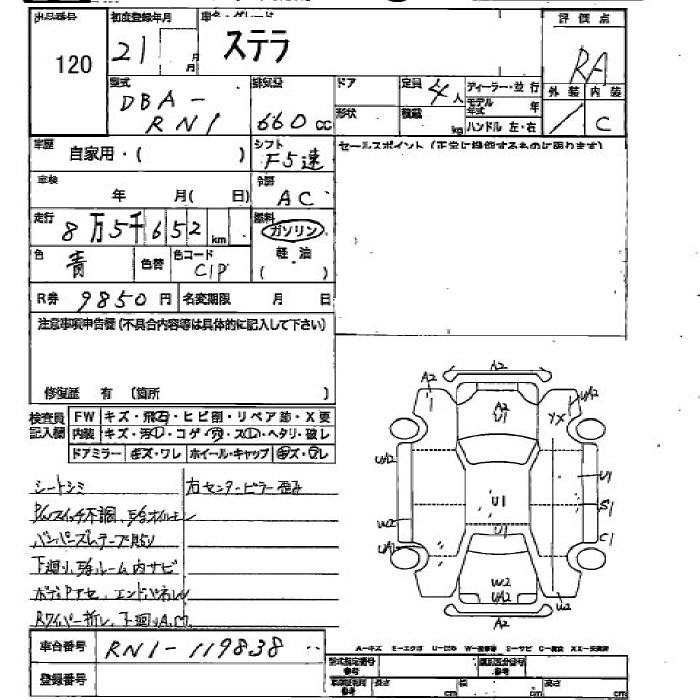 出品番号
120
初度登録年月
21
月
車名・グレード
ステラ
評価点
RA
外装 内装
C
型式
DBA-
RN1
排気量
660 cc
ドア
形状
定員
4人
積載
kg
ディーラー・並行
モデル年式 年
ハンドル 左・右
車歴
自家用・( )
シフト
F5速
セールスポイント(正常に機能するものに限ります)
車検
年 月( 日)
冷房
AC
走行
8万5千652km
燃料
ガソリン
軽油
( )
色
青
色替
色コード
C1P
R券 9850円
名変期限 月 日
注意事項申告欄(不具合内容等は具体的に記入して下さい)
修復歴 有 (箇所 )
検査員
記入欄
FW キズ・飛石・ヒビ割・リペア跡・X要
内装 キズ・汚レ・コゲ・穴・スレ・ヘタリ・破レ
ドアミラー キズ・ワレ ホイール・キャップ キズ・ワレ
シートシミ
右センターピラー歪み
下廻り、Egルーム内サビ
車台番号
RN1-119838
登録番号
A2
A2
UA2
A2
U1
XX
UA2
U1
U1
S1
W2
U1
C1
UA1
W2
UA2
U2
A2
A-キズ E-エクボ U-凹み W-補修等 S-サビ C-腐食 XX-交換済
型式指定番号
参考
類別区分番号
参考
車検証有効
参考
長さ cm
幅 cm
高さ cm